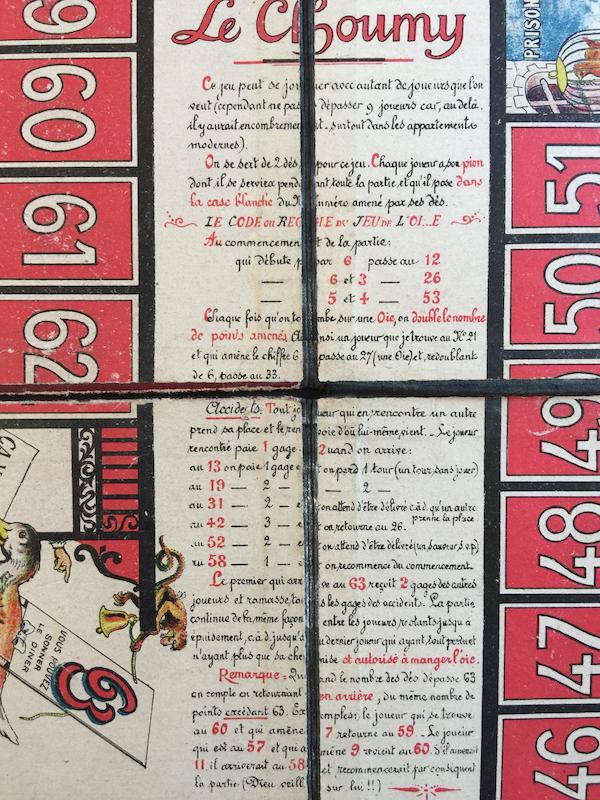 Le Choumy
Ce jeu peut se jouer avec autant de joueurs que l'on
veut (cependant ne pas dépasser 9 joueurs car, au delà,
il y aurait encombrement, surtout dans les appartements
modernes).
On se sert de 2 dés pour ce jeu. Chaque joueur a son pion
dont il se servira pendant toute la partie, et qu'il pose dans
la case blanche du Numéro amené par ses dés.
LE CODE ou REGLE DU JEU DE L'OI...E
Au commencement de la partie:
qui débute par 6 passe au 12
— 6 et 3 — 26
— 5 et 4 — 53
Chaque fois qu'on tombe sur une Oie, on double le nombre
de points amenés. Ainsi un joueur que je trouve au No 21
et qui amène le chiffre 6 passe au 27 (une Oie) et, redoublant
de 6, passe au 33.
Accidents: Tout joueur qui en rencontre un autre
prend sa place et le renvoie d'où lui-même vient. - Le joueur
rencontré paie 1 gage. Quand on arrive:
au 13 on paie 1 gage et on perd 1 tour (un tour sans jouer)
au 19 — 2 — — 2 —
au 31 — 2 — et on attend d'être délivré c.à.d. qu'un autre
prenne la place
au 42 — 3 — et on retourne au 26.
au 52 — 2 — et on attend d'être délivré (un sauveur s.v.p)
au 58 — 1 — et on recommence du commencement.
Le premier qui arrive au 63 reçoit 2 gages des autres
joueurs et ramasse tous les gages des accidents. La partie
continue de la même façon entre les joueurs restants jusqu'à
épuisement, c.à.d. jusqu'au dernier joueur qui ayant tout perdu et
n'ayant plus que sa chemise est autorisé à manger l'oie.
Remarque = Quand le nombre des dés dépasse 63
on compte en retournant en arrière, du même nombre de
points excédant 63. Exemples: le joueur qui se trouve
au 60 et qui amène 7 retourne au 59. - Le joueur
qui est au 57 et qui amène 9 revient au 60. S'il amenait
11 il arriverait au 58 et recommencerait par conséquent
la partie (Dieu veille sur lui!!)
60
61
62
PRISON
51
50
49
48
47
46
63
VOUS POUVEZ
SONNER
LE DINER